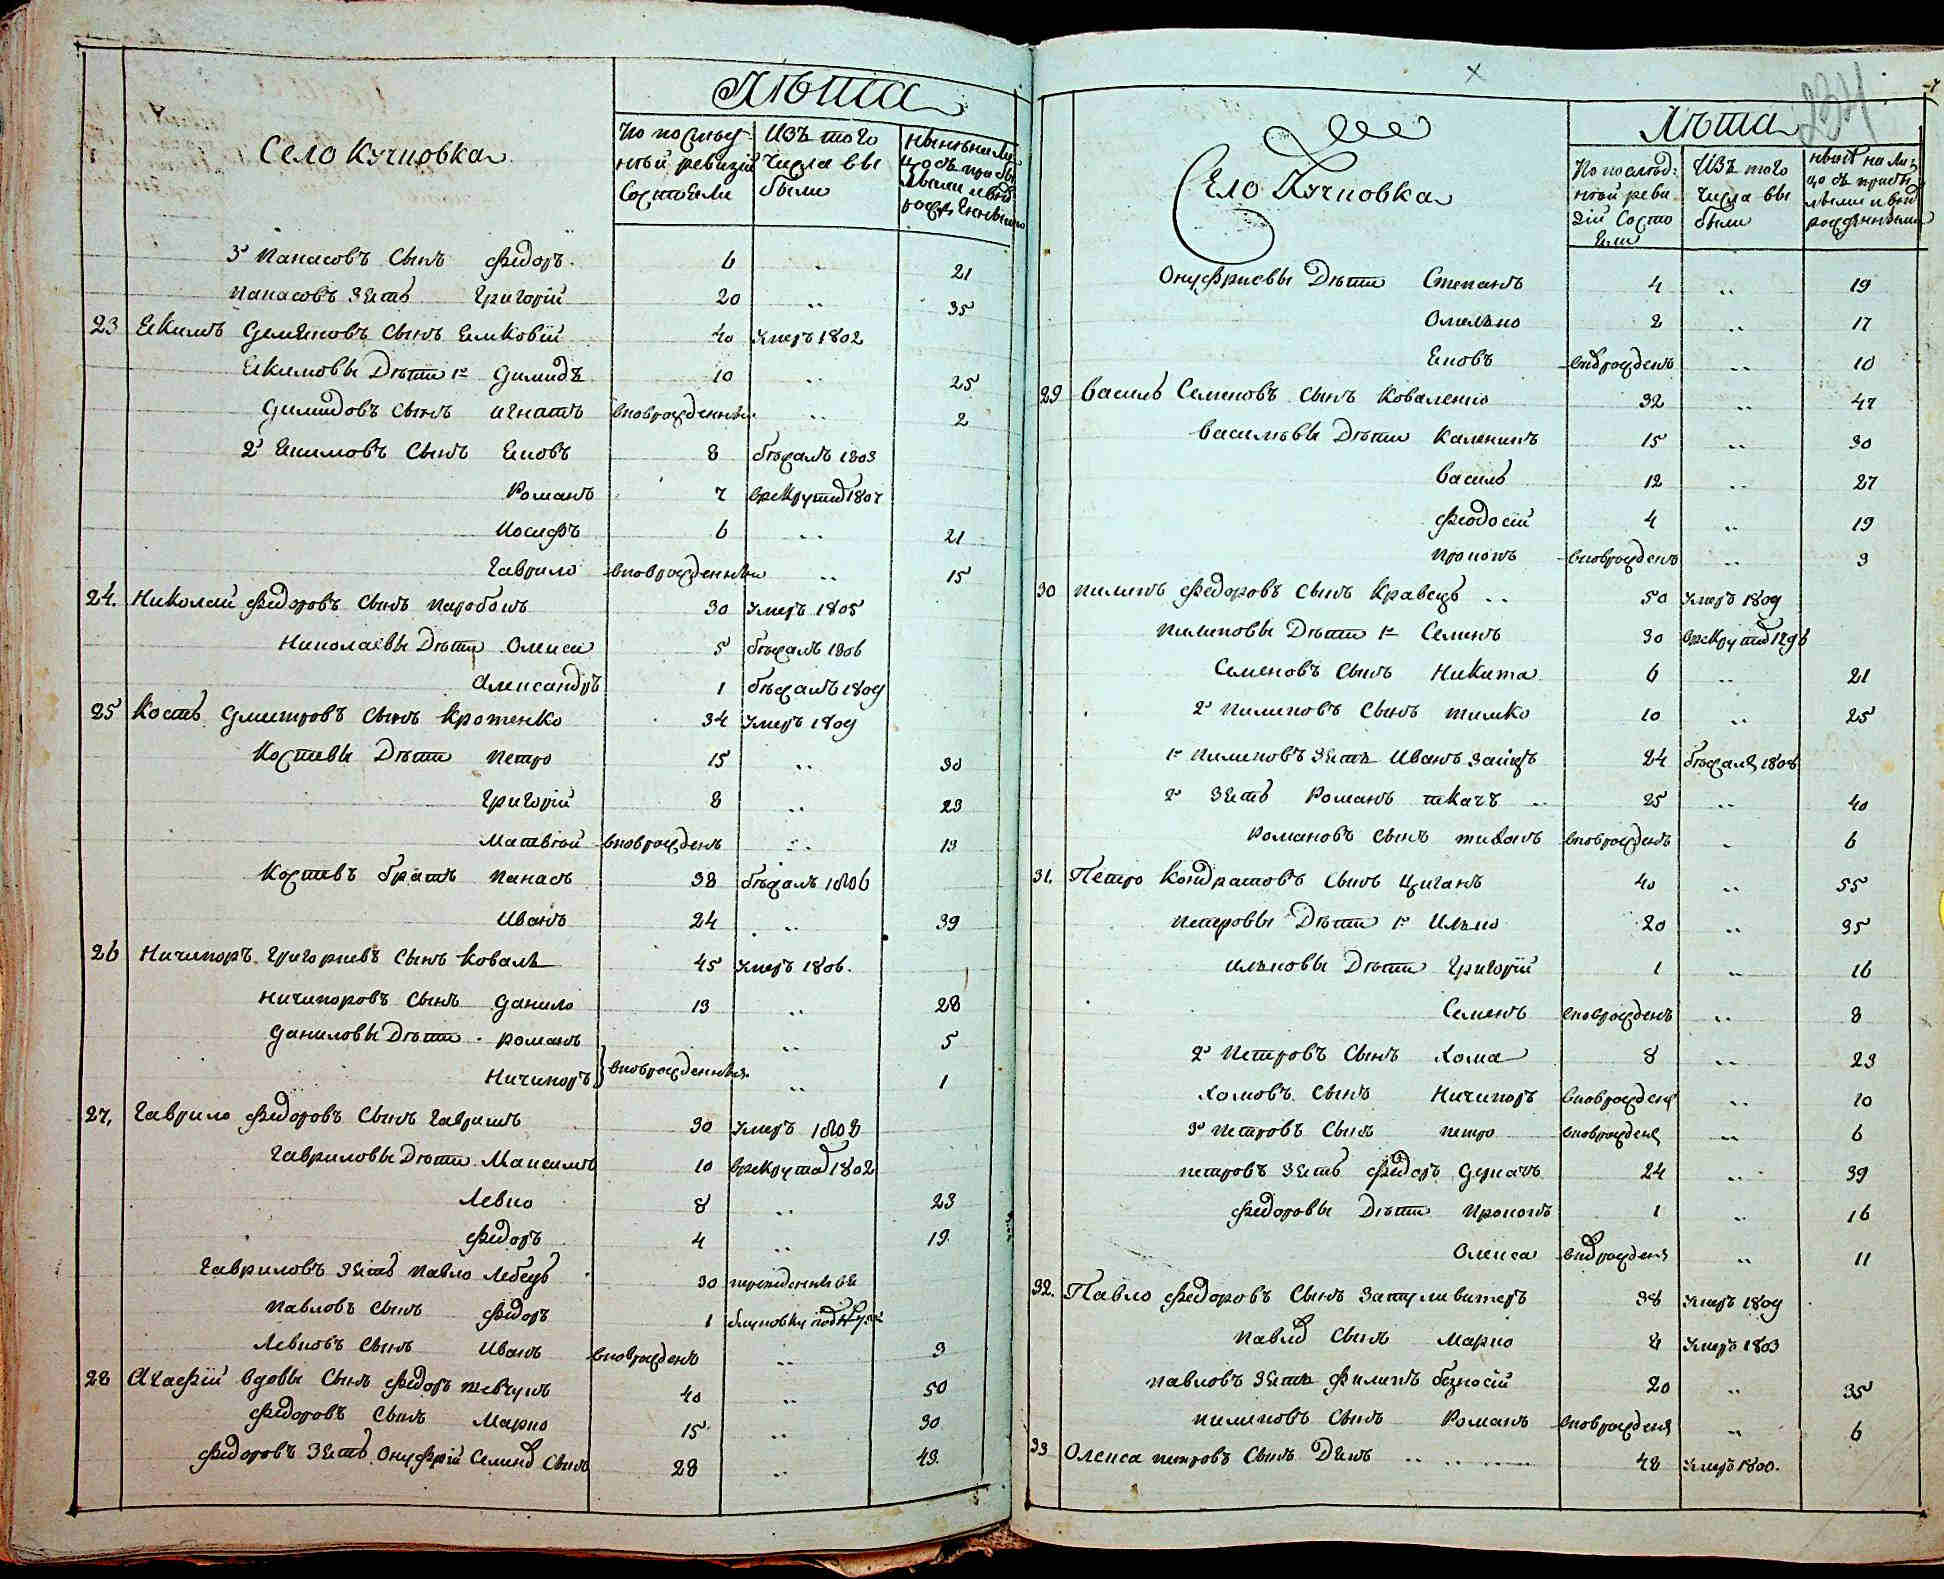 Село Кучновка
Лѣта
По послѣд
ньой ревизій
Состоели
Изъ того
Числа вы
были
нынѣ на ли
цо съ прибы
лыми и внов
рожденными
3й Панасовъ Сынъ Федоръ 6 .. 21
Панасовъ Зять Григорій 20 .. 35
23 Екимъ Демяновъ Сынъ 40 умеръ 1802
Екимовы Дѣти 1й Демидъ 10 .. 25
Демидовъ Сынъ Игнатъ вноврожденный .. 2
2й Екимовъ Сынъ Яковъ 8 бѣжалъ 1803
Романъ 7 врекруты 1807
Иосифъ 6 .. 21
Гаврило вноврожденный .. 15
24. Николай Федоровъ Сынъ Паробокъ 30 умеръ 1805
Николаевы Дѣти Олекси 5 бѣжалъ 1806
Александръ 1 бѣжалъ 1809
25 Кость Дмитровъ Сынъ Кротенко 34 умеръ 1809
Костевы Дѣти Петро 15 .. 30
Григорій 8 .. 23
Матвѣй вноврожденъ .. 13
Костевъ братъ Панасъ 38 бѣжалъ 1806
Иванъ 24 .. 39
26 Ничипоръ Григориевъ Сынъ Коваль 45 умеръ 1806.
Ничипоровъ Сынъ Данило 13 .. 28
Даниловы Дѣти Романъ .. 5
Ничипоръ } вноврожденныя .. 1
27. Гаврило Федоровъ Сынъ Гавришъ 30 умеръ 1808
Гавриловы Дѣти Максимъ 10 врекруты 1802
Левко 8 .. 23
Федоръ 4 .. 19
Гавриловъ Зять Павло Лебедь 30 переведенъ въ
Павловъ Сынъ Федоръ 1
Левковъ Сынъ Иванъ вноврожденъ .. 3
28 Агафій вдовы Сынъ Федоръ Шевчукъ 40 .. 50
Федоровъ Сынъ Марко 15 .. 30
Федоровъ Зять Онуфрій Семенов Сынъ 28 .. 43
234
Село Кучновка
Лѣта
По послѣд:
ньой реви
зій Состо
Ели
Изъ того
Числа вы
были
нынѣ на ли:
цо съ прибы
лыми и внов
рожденными
Онуфриевы Дѣти Степанъ 4 .. 19
Омелько 2 .. 17
Яковъ вноврожденъ .. 10
29 Василь Семеновъ Сынъ Коваленко 32 .. 47
Васильевы Дѣти Каленикъ 15 .. 30
Василь 12 .. 27
Феодосій 4 .. 19
Прокопъ вноврожденъ .. 3
30 Пилипъ Федоровъ Сынъ Кравецъ .. 50 умеръ 1809
Пилиповы Дѣти 1й Семенъ 30 врекруты 1796
Семеновъ Сынъ Никита 6 .. 21
2й Пилиповъ Сынъ Тимко 10 .. 25
1й Пилиповъ Зять Иванъ Заецъ 24 бѣжалъ 1808
2й Зять Романъ Ткачъ .. 25 .. 40
Романовъ Сынъ Тихонъ вноврожденъ .. 6
31. Петро Кондратовъ Сынъ Циганъ 40 .. 55
Петровы Дѣти 1й Илько 20 .. 35
Ильковы Дѣти Григорій 1 .. 16
Семенъ вноврожденъ .. 8
2й Петровъ Сынъ Хома 8 .. 23
Хомовъ Сынъ Ничипоръ вновроженъ .. 10
3й Петровъ Сынъ Петро вновроженъ .. 6
Петровъ Зять Федоръ Деркачъ 24 .. 39
Федоровы Дѣти Прокопъ 1 .. 16
Олекса вноврожденъ .. 11
32. Павло Федоровъ Сынъ Затуливитеръ 38 умеръ 1809
Павлов Сынъ Марко 8 умеръ 1803
Павловъ Зять Филипъ безносій 20 .. 35
Пилиповъ Сынъ Романъ вноврожденъ .. 6
33 Олекса Петровъ Сынъ 48 умеръ 1800.